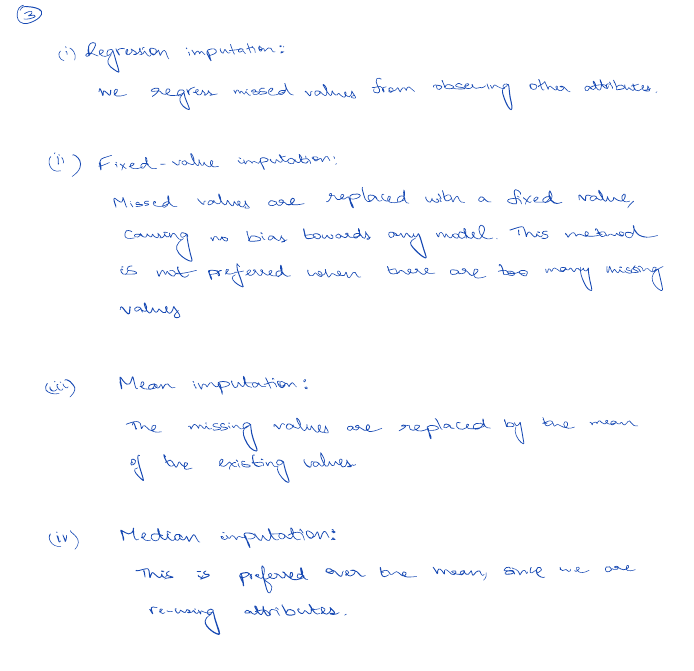 3
(i) Regression imputation:
we regress missed values from observing other attributes.
(ii) Fixed-value imputation:
Missed values are replaced with a fixed value,
causing no bias towards any model. This method
is not preferred when there are too many missing
values
(iii) Mean imputation:
The missing values are replaced by the mean
of the existing values
(iv) Median imputation:
This is preferred over the mean, since we are
re-using attributes.